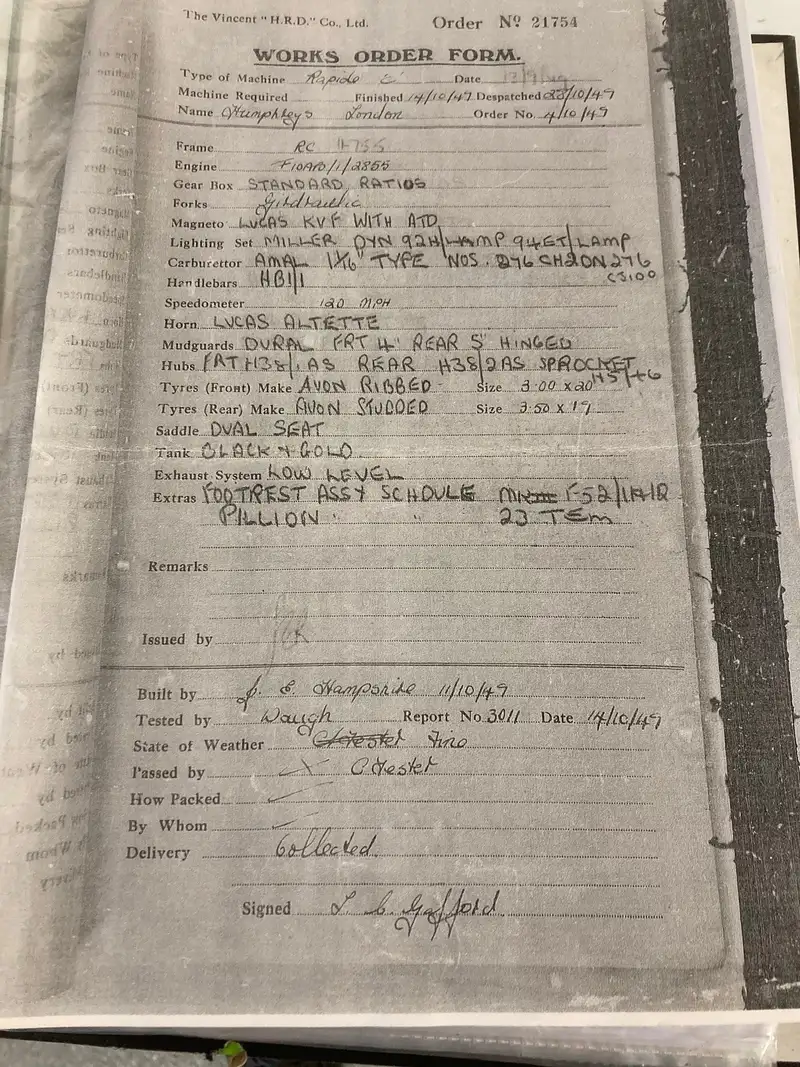 The Vincent "H.R.D." Co., Ltd. Order No 21754
WORKS ORDER FORM.
Type of Machine Rapide C Date
Machine Required Finished 14/10/49 Despatched 28/10/49
Name Humphreys London Order No. 4/10/49
Frame RC
Engine F10AB/1/2855
Gear Box STANDARD RATIOS
Forks
Magneto LUCAS KVF WITH ATD
Lighting Set MILLER DYN 92H/LAMP 94ET/LAMP
Carburettor AMAL 1 1/16" TYPE NOS. 276 CH 2 ON 276
Handlebars HB1/1 CS100
Speedometer 120 MPH
Horn LUCAS ALTETTE
Mudguards DURAL FRT 4" REAR 5" HINGED
Hubs FRT H38/1 AS REAR H38/2 AS SPROCKET
Tyres (Front) Make AVON RIBBED Size 3.00 x 20
Tyres (Rear) Make AVON STUDDED Size 3.50 x 19
Saddle DUAL SEAT
Tank BLACK & GOLD
Exhaust System LOW LEVEL
Extras FOOTREST ASSY
PILLION " "
Remarks
Issued by
Built by J. E. Hampshire 11/10/49
Tested by Waugh Report No. 3011 Date 14/10/49
State of Weather Fine
Passed by Chester
How Packed
By Whom
Delivery Collected
Signed